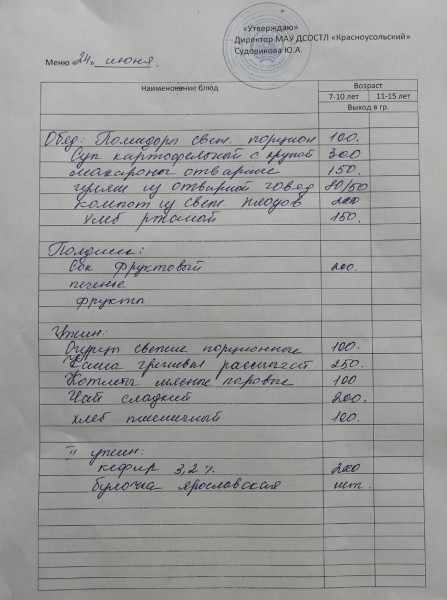 «Утверждаю»
Директор МАУ ДСОСТЛ «Красноусольский»
Судовикова Ю.А.
Меню «24» июня.
Наименование блюд Возраст
7-10 лет 11-15 лет
Выход в гр.
Обед: Помидоры свеж. порцион 100.
Суп картофельный с крупой 300
макароны отварные 150.
гуляш из отварной говяд 80/50
компот из свеж. плодов 200
хлеб ржаной 150.
Полдник:
Сок фруктовый 200.
печенье
фрукты
Ужин:
Огурцы свежие порционные 100.
Каша гречневая рассыпчат 250.
Котлеты мясные паровые 100
Чай сладкий 200.
хлеб пшеничный 100.
II ужин:
кефир 3,2%. 200
булочка ярославская шт.